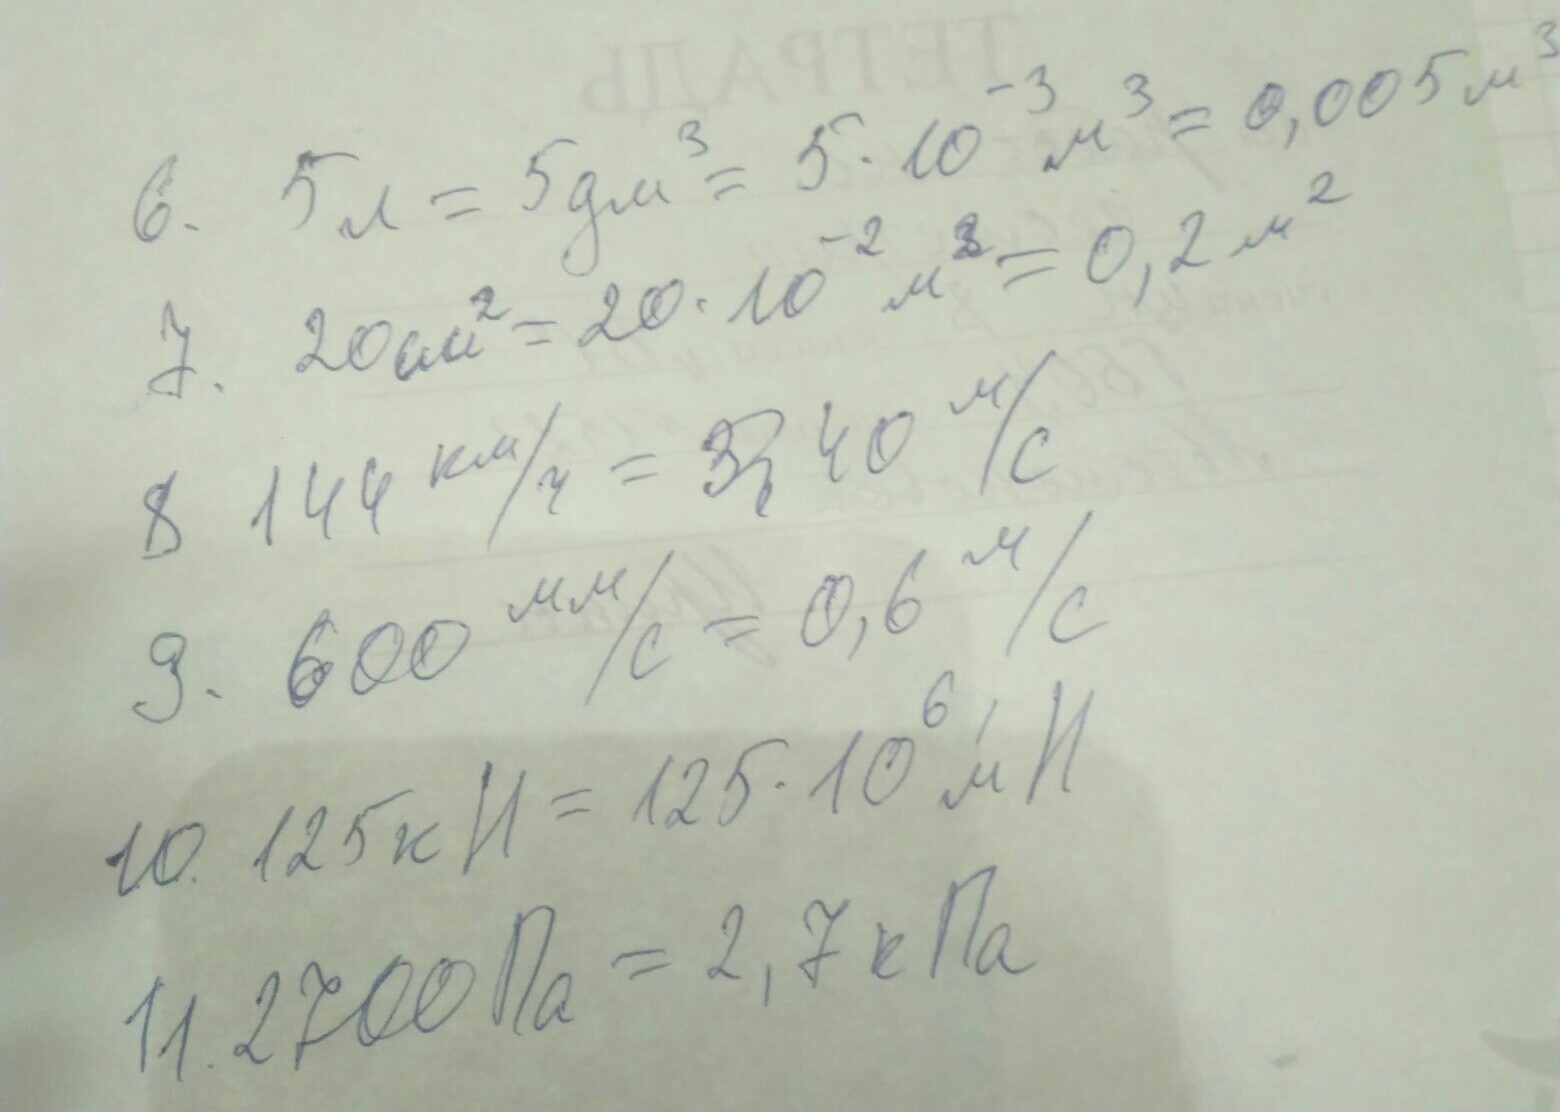 ТЕТРАДЬ
6. 5л = 5дм³ = 5·10⁻³ м³ = 0,005 м³
7. 20см² = 20·10⁻² м² = 0,2 м²
8 144 км/ч = 40 м/с
9. 600 мм/с = 0,6 м/с
10. 125кН = 125·10⁶ мН
11. 2700Па = 2,7 кПа